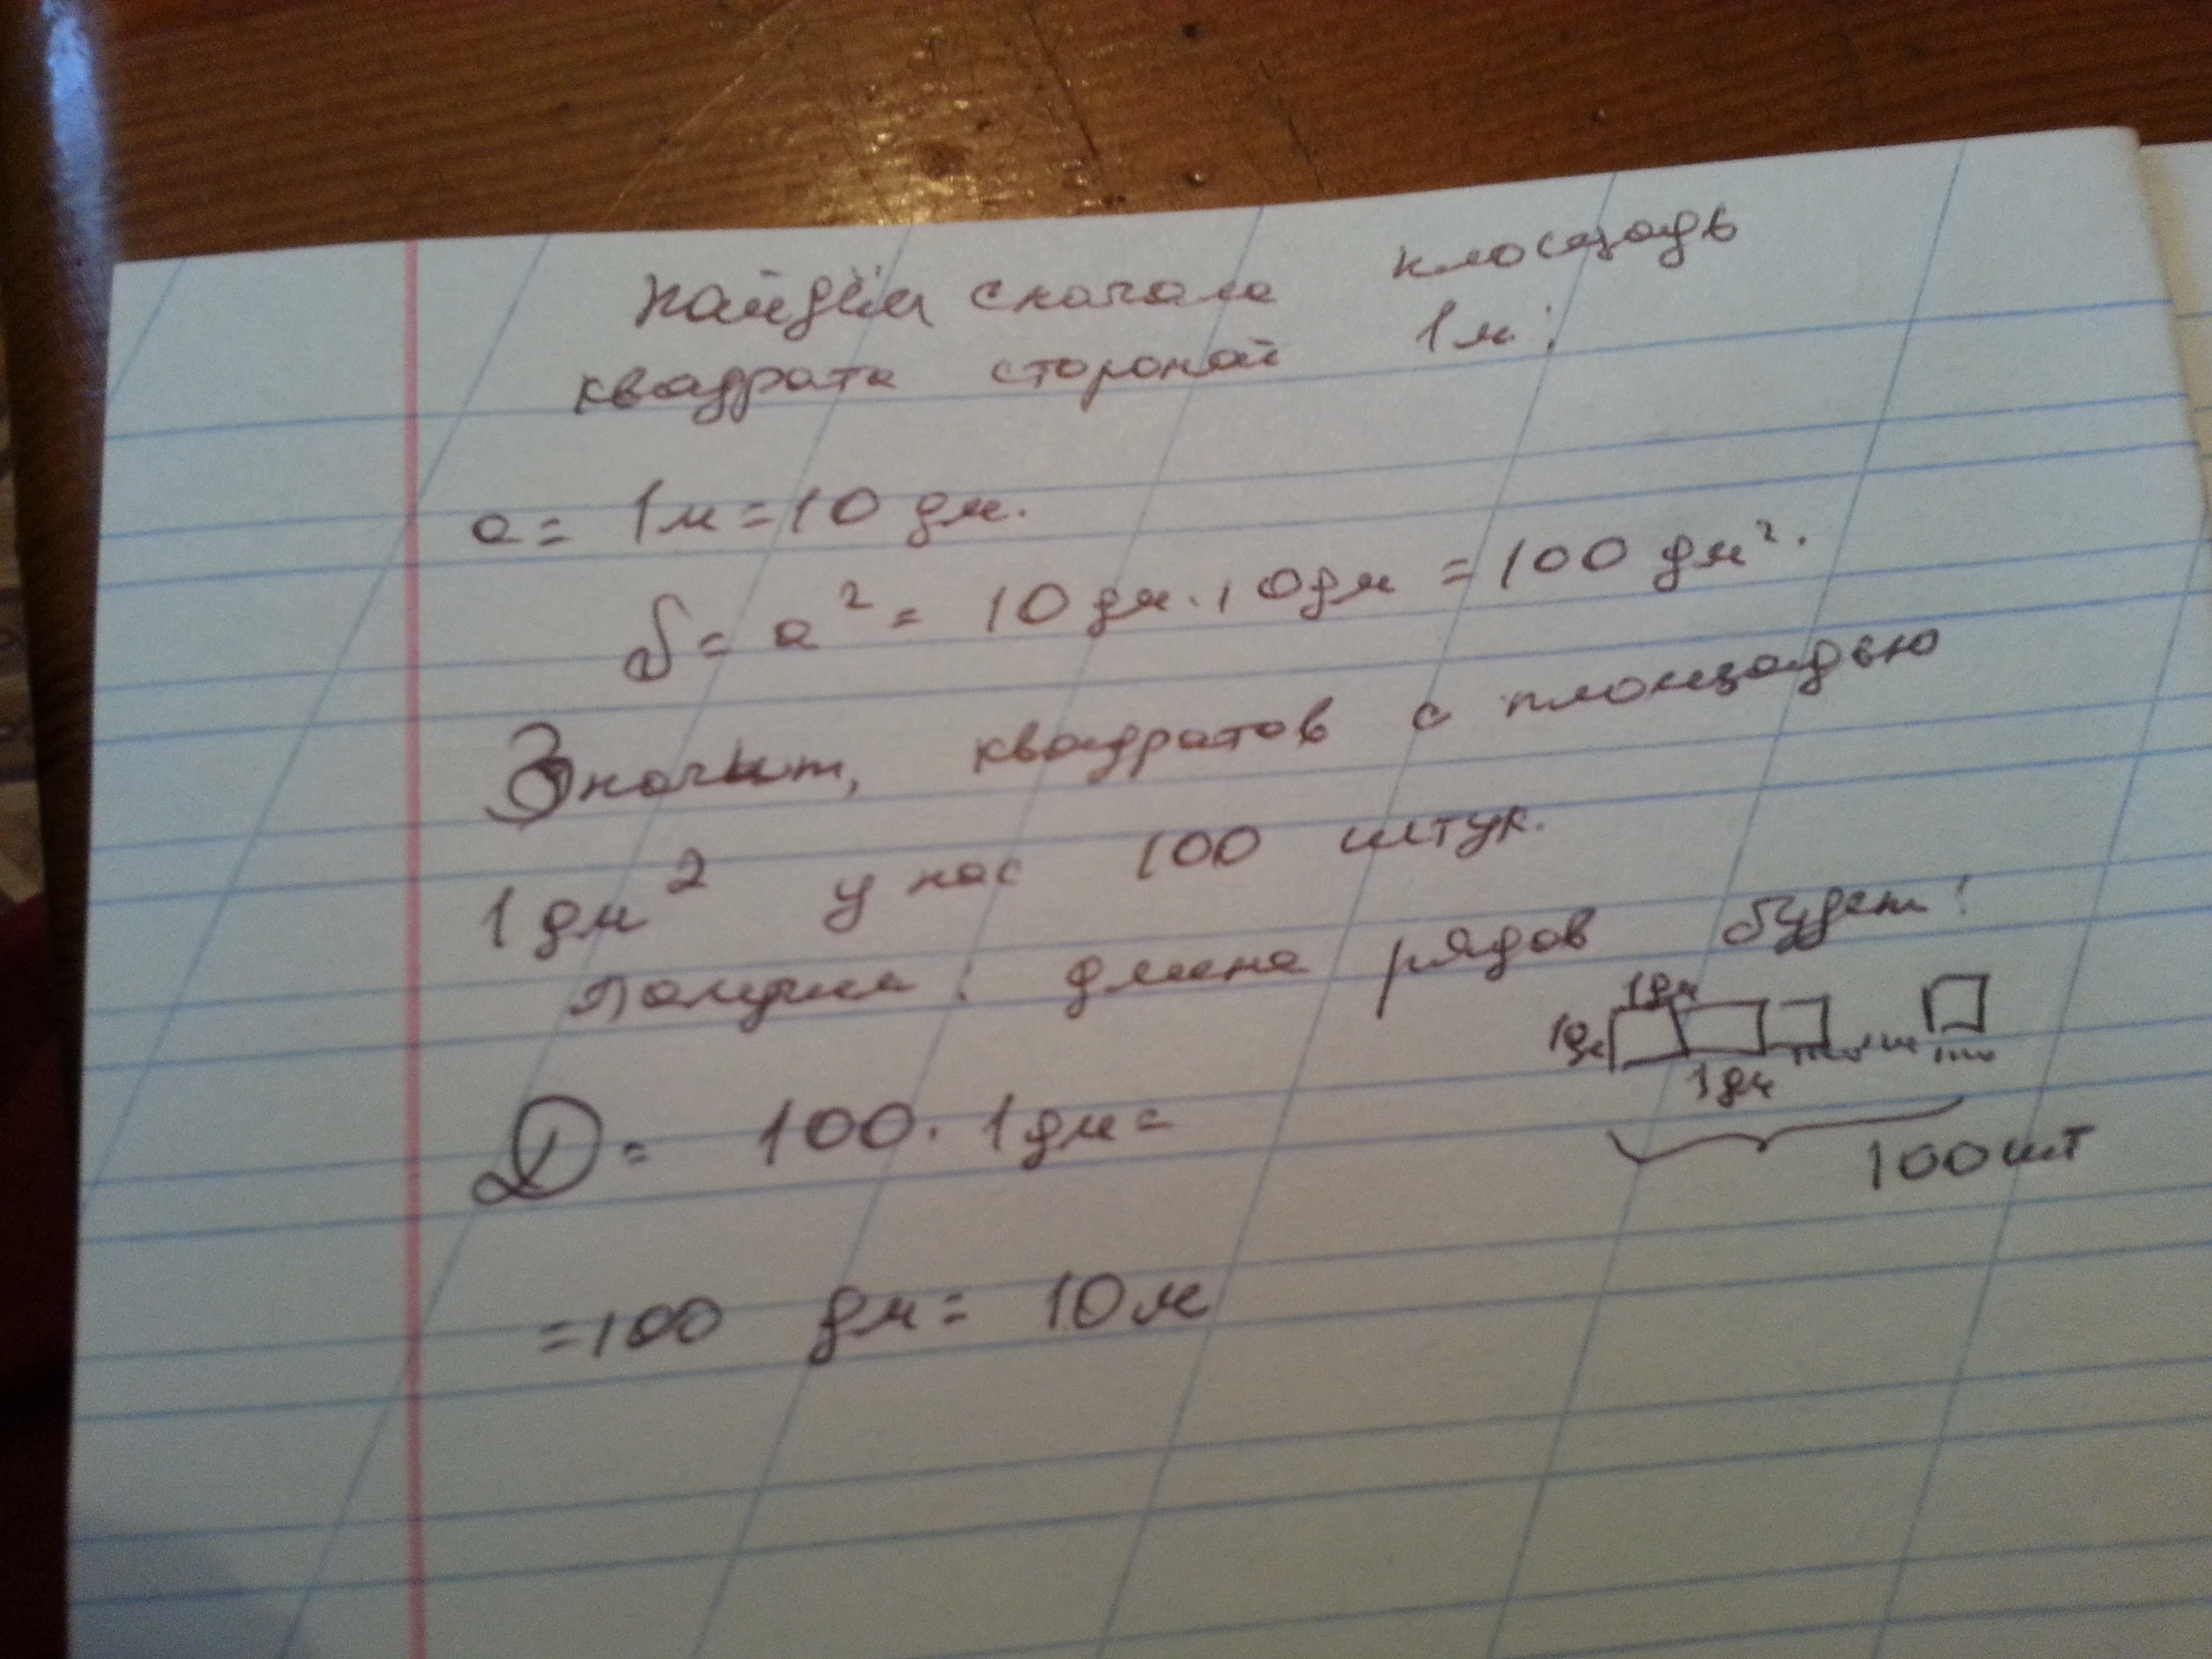 Найдём сначала площадь
квадрата стороной 1м:
a = 1м = 10 дм.
S = a² = 10 дм · 10 дм = 100 дм².
Значит, квадратов с площадью
1 дм² у нас 100 штук.
Получим: длина рядов будет:
1дм
1дм
1дм
100 шт
D = 100 · 1 дм =
= 100 дм = 10 м